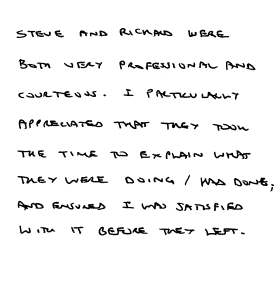 STEVE AND RICHARD WERE
BOTH VERY PROFESSIONAL AND
COURTEOUS. I PARTICULARLY
APPRECIATED THAT THEY TOOK
THE TIME TO EXPLAIN WHAT
THEY WERE DOING / HAD DONE,
AND ENSURED I WAS SATISFIED
WITH IT BEFORE THEY LEFT.